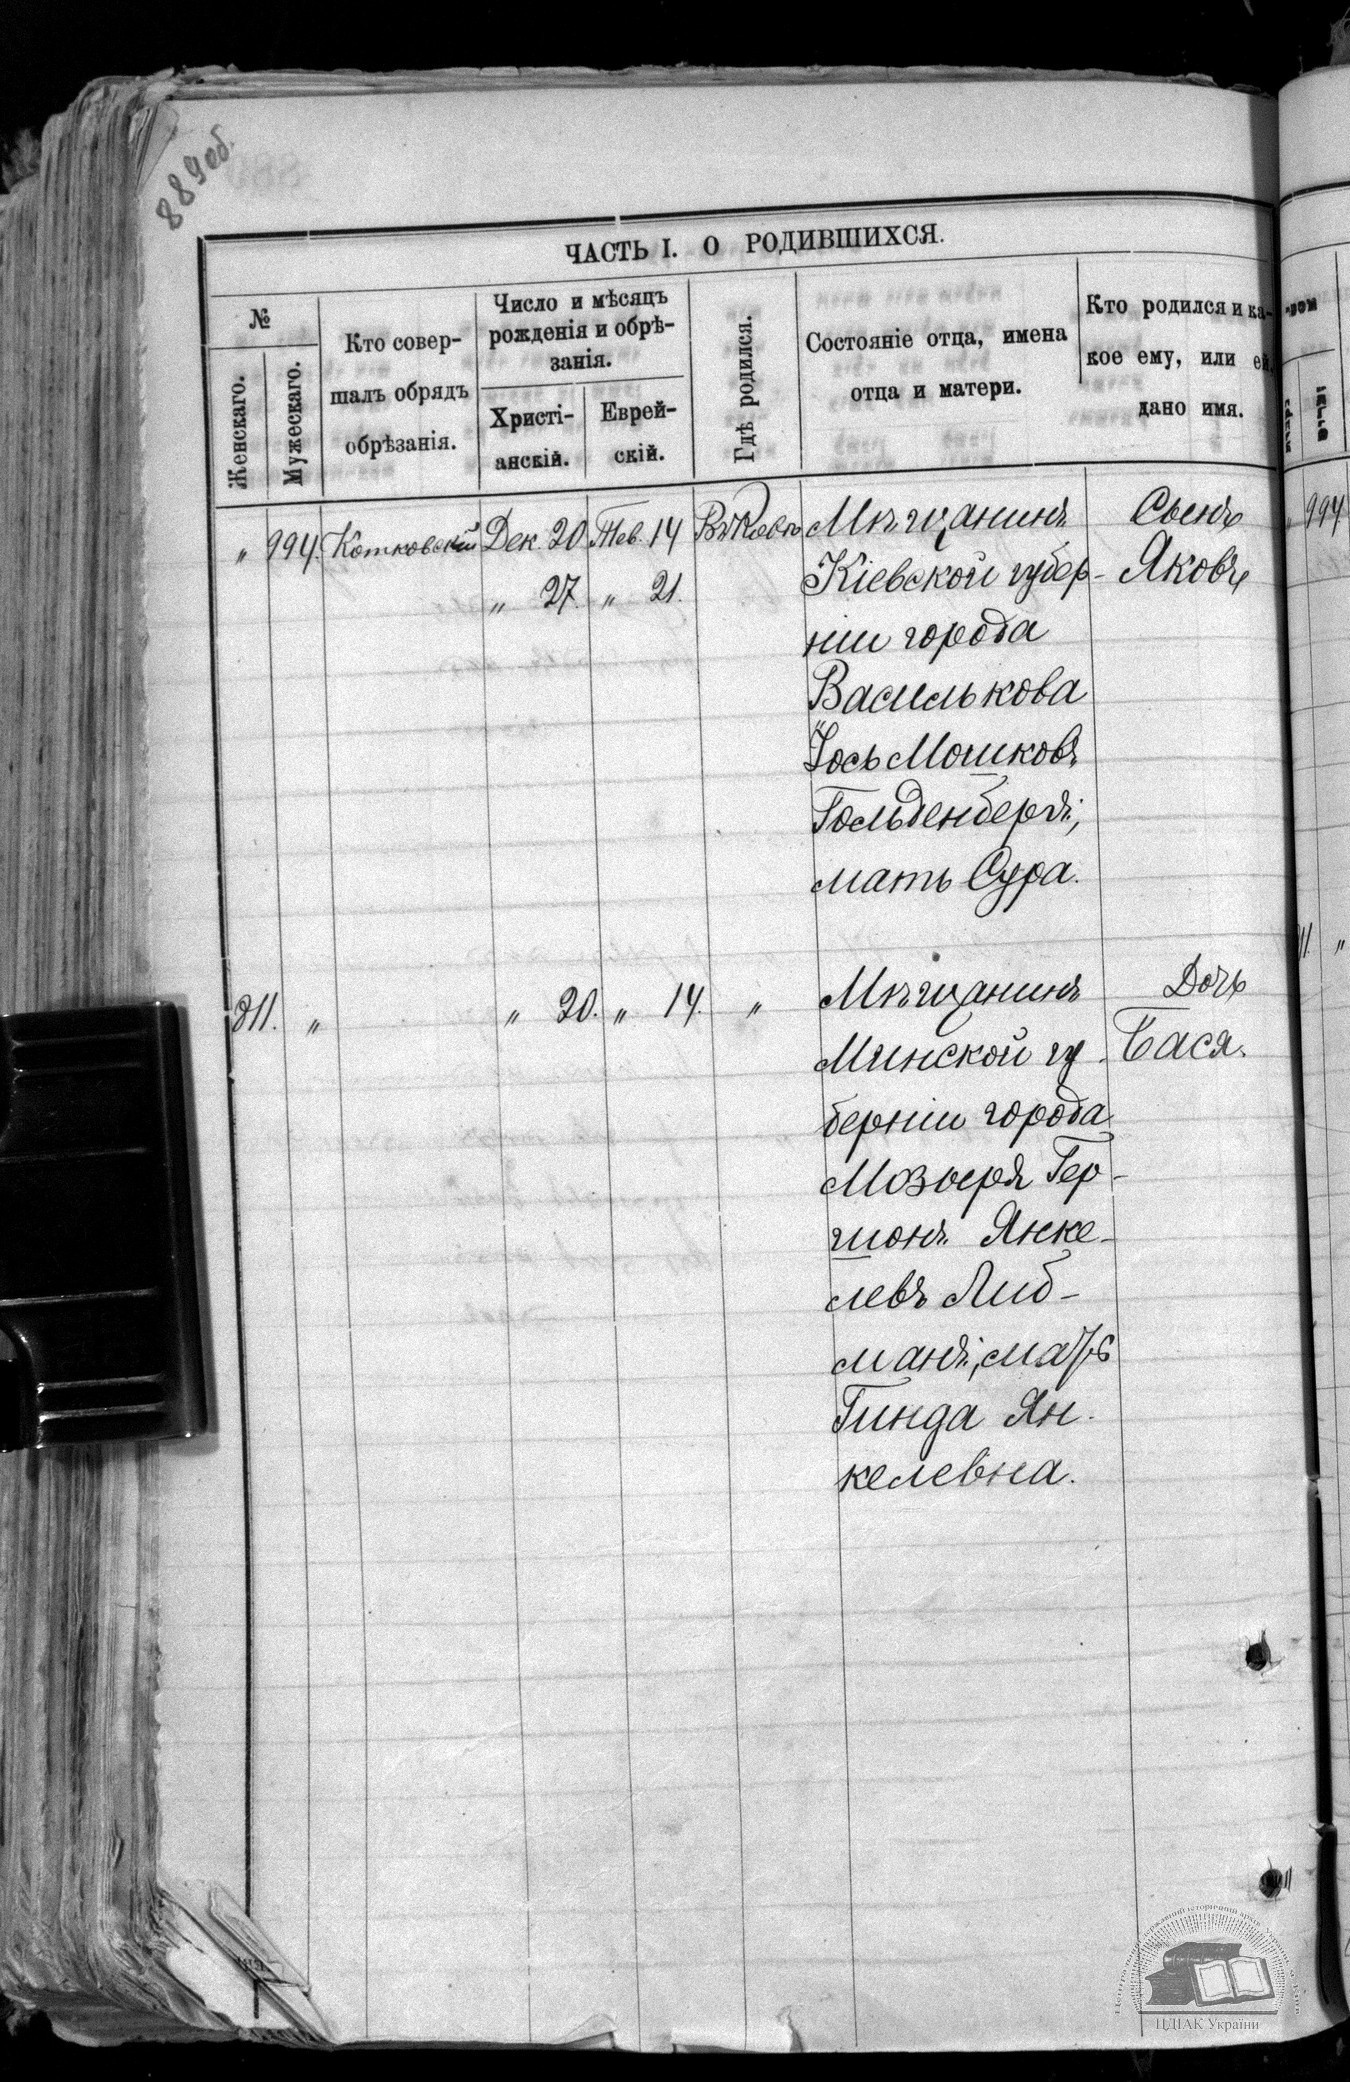 889 об.
ЧАСТЬ I. О РОДИВШИХСЯ.
№
Женскаго.
Мужескаго.
Кто совер-
шалъ обрядъ
обрѣзанія.
Число и мѣсяцъ
рожденія и обрѣ-
занія.
Христі-
анскій.
Еврей-
скій.
Гдѣ родился.
Состояніе отца, имена
отца и матери.
Кто родился и ка-
кое ему, или ей,
дано имя.
„ 994. Котковскій Дек. 20. Тев. 14 Въ Кіевѣ Мѣщанинъ Сынъ
„ 27. „ 21. Кіевской губер- Яковъ
ніи города
Василькова
Іось Мошковъ
Гольденбергъ;
мать Сура.
811. „ „ 20. „ 14. „ Мѣщанинъ Дочь
Минской гу- Бася.
берніи города
Мозыря Гер-
шонъ Янке-
левъ Либ-
манъ; мать
Гинда Ян-
келевна.
994
11. „
ЦДІАК України